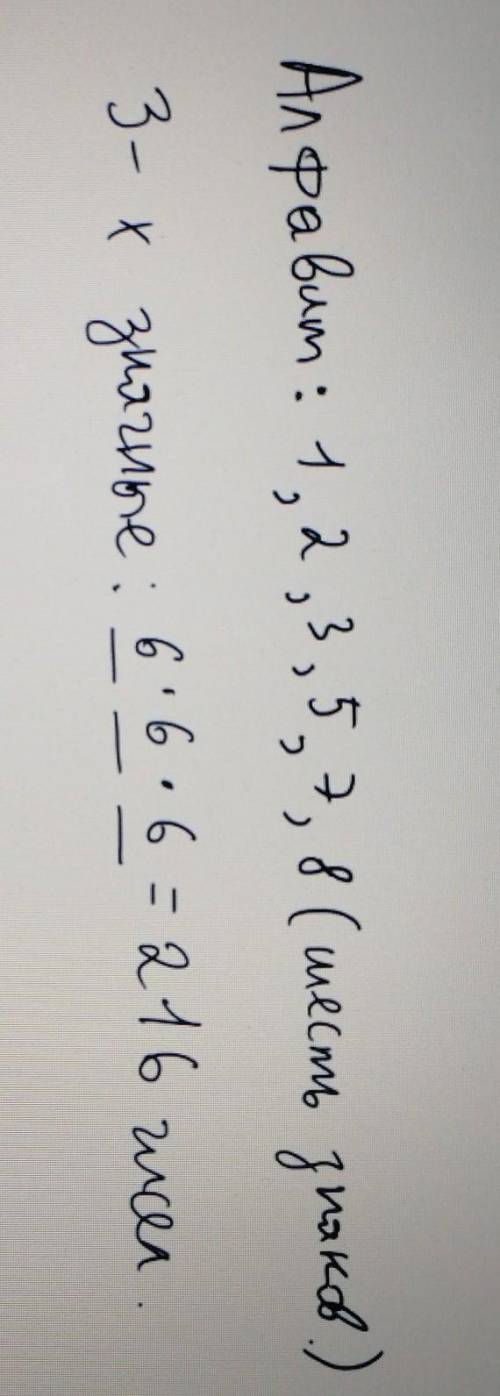 Алфавит: 1, 2, 3, 5, 7, 8 (шесть знаков.)
3-х значные: 6·6·6 = 216 чисел.